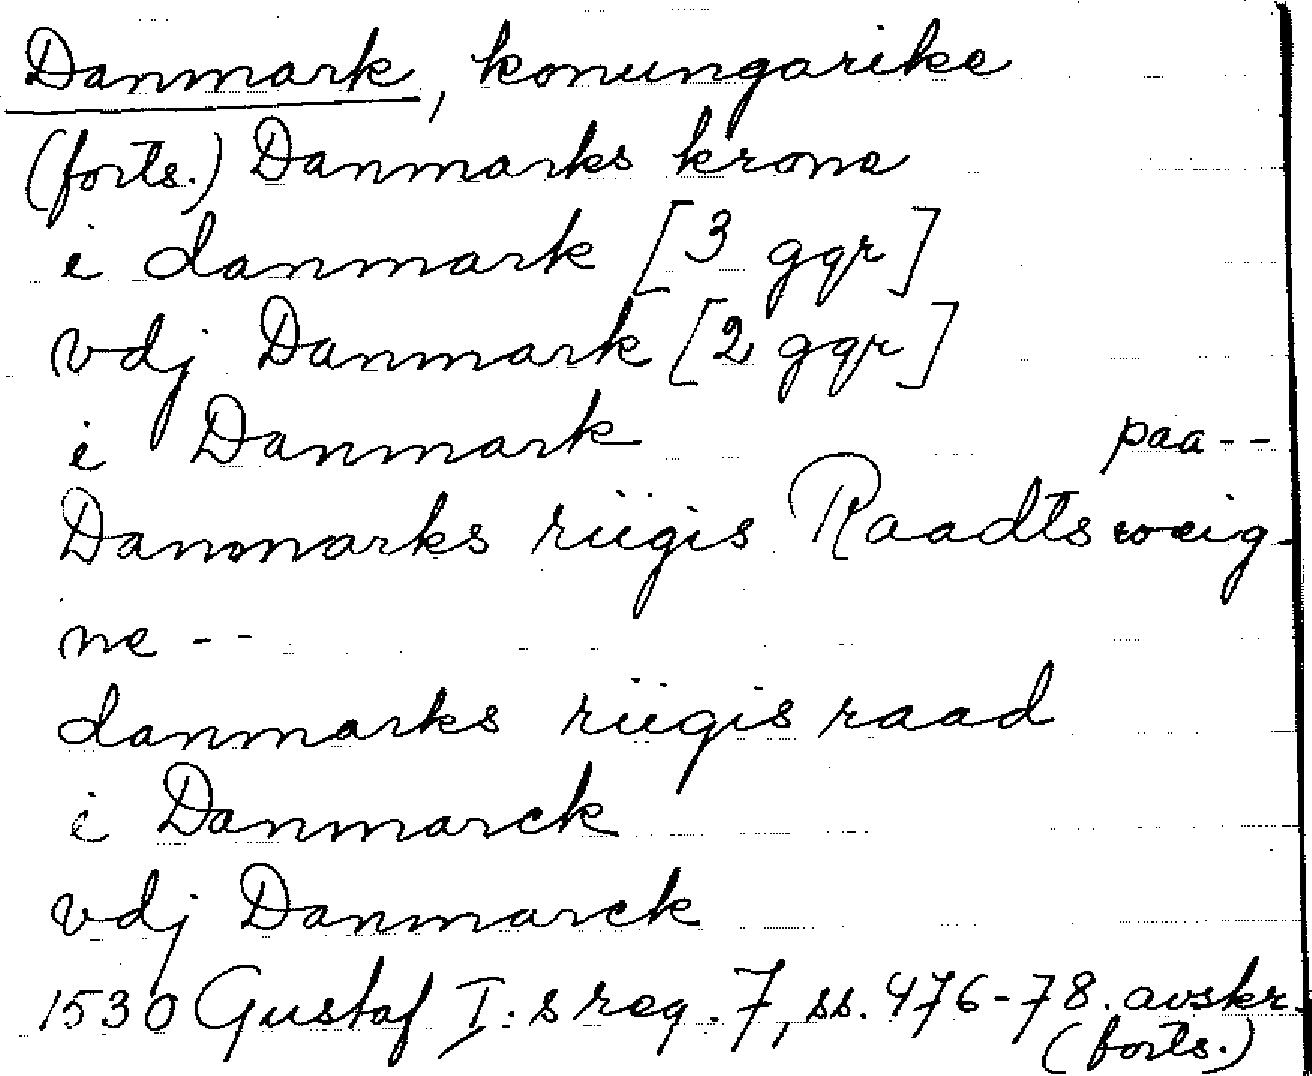 Danmark, konungarike
(forts.) Danmarks krone
i danmark [3 ggr]
vdj Danmark [2 ggr]
i Danmark
Danmarks riigis Raadts paa--
weig-
ne --
danmarks riigis raad
i Danmarck
vdj Danmarck
1530 Gustaf I:s reg. 7, ss. 476-78. avskr.
(forts.)